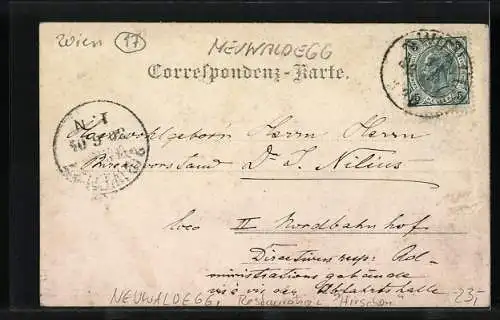 Wien (17)
NEUWALDEGG
Correspondenz-Karte.
Hochwohlgeborn Herrn Herrn
Bureauvorstand Dr. J. Nilius
loco II Nordbahnhof
Directions resp: Ad-
ministrationsgebäude
vis à vis der Abfahrtshalle
NEUWALDEGG, Restauration z. "Hirschen" 23,-